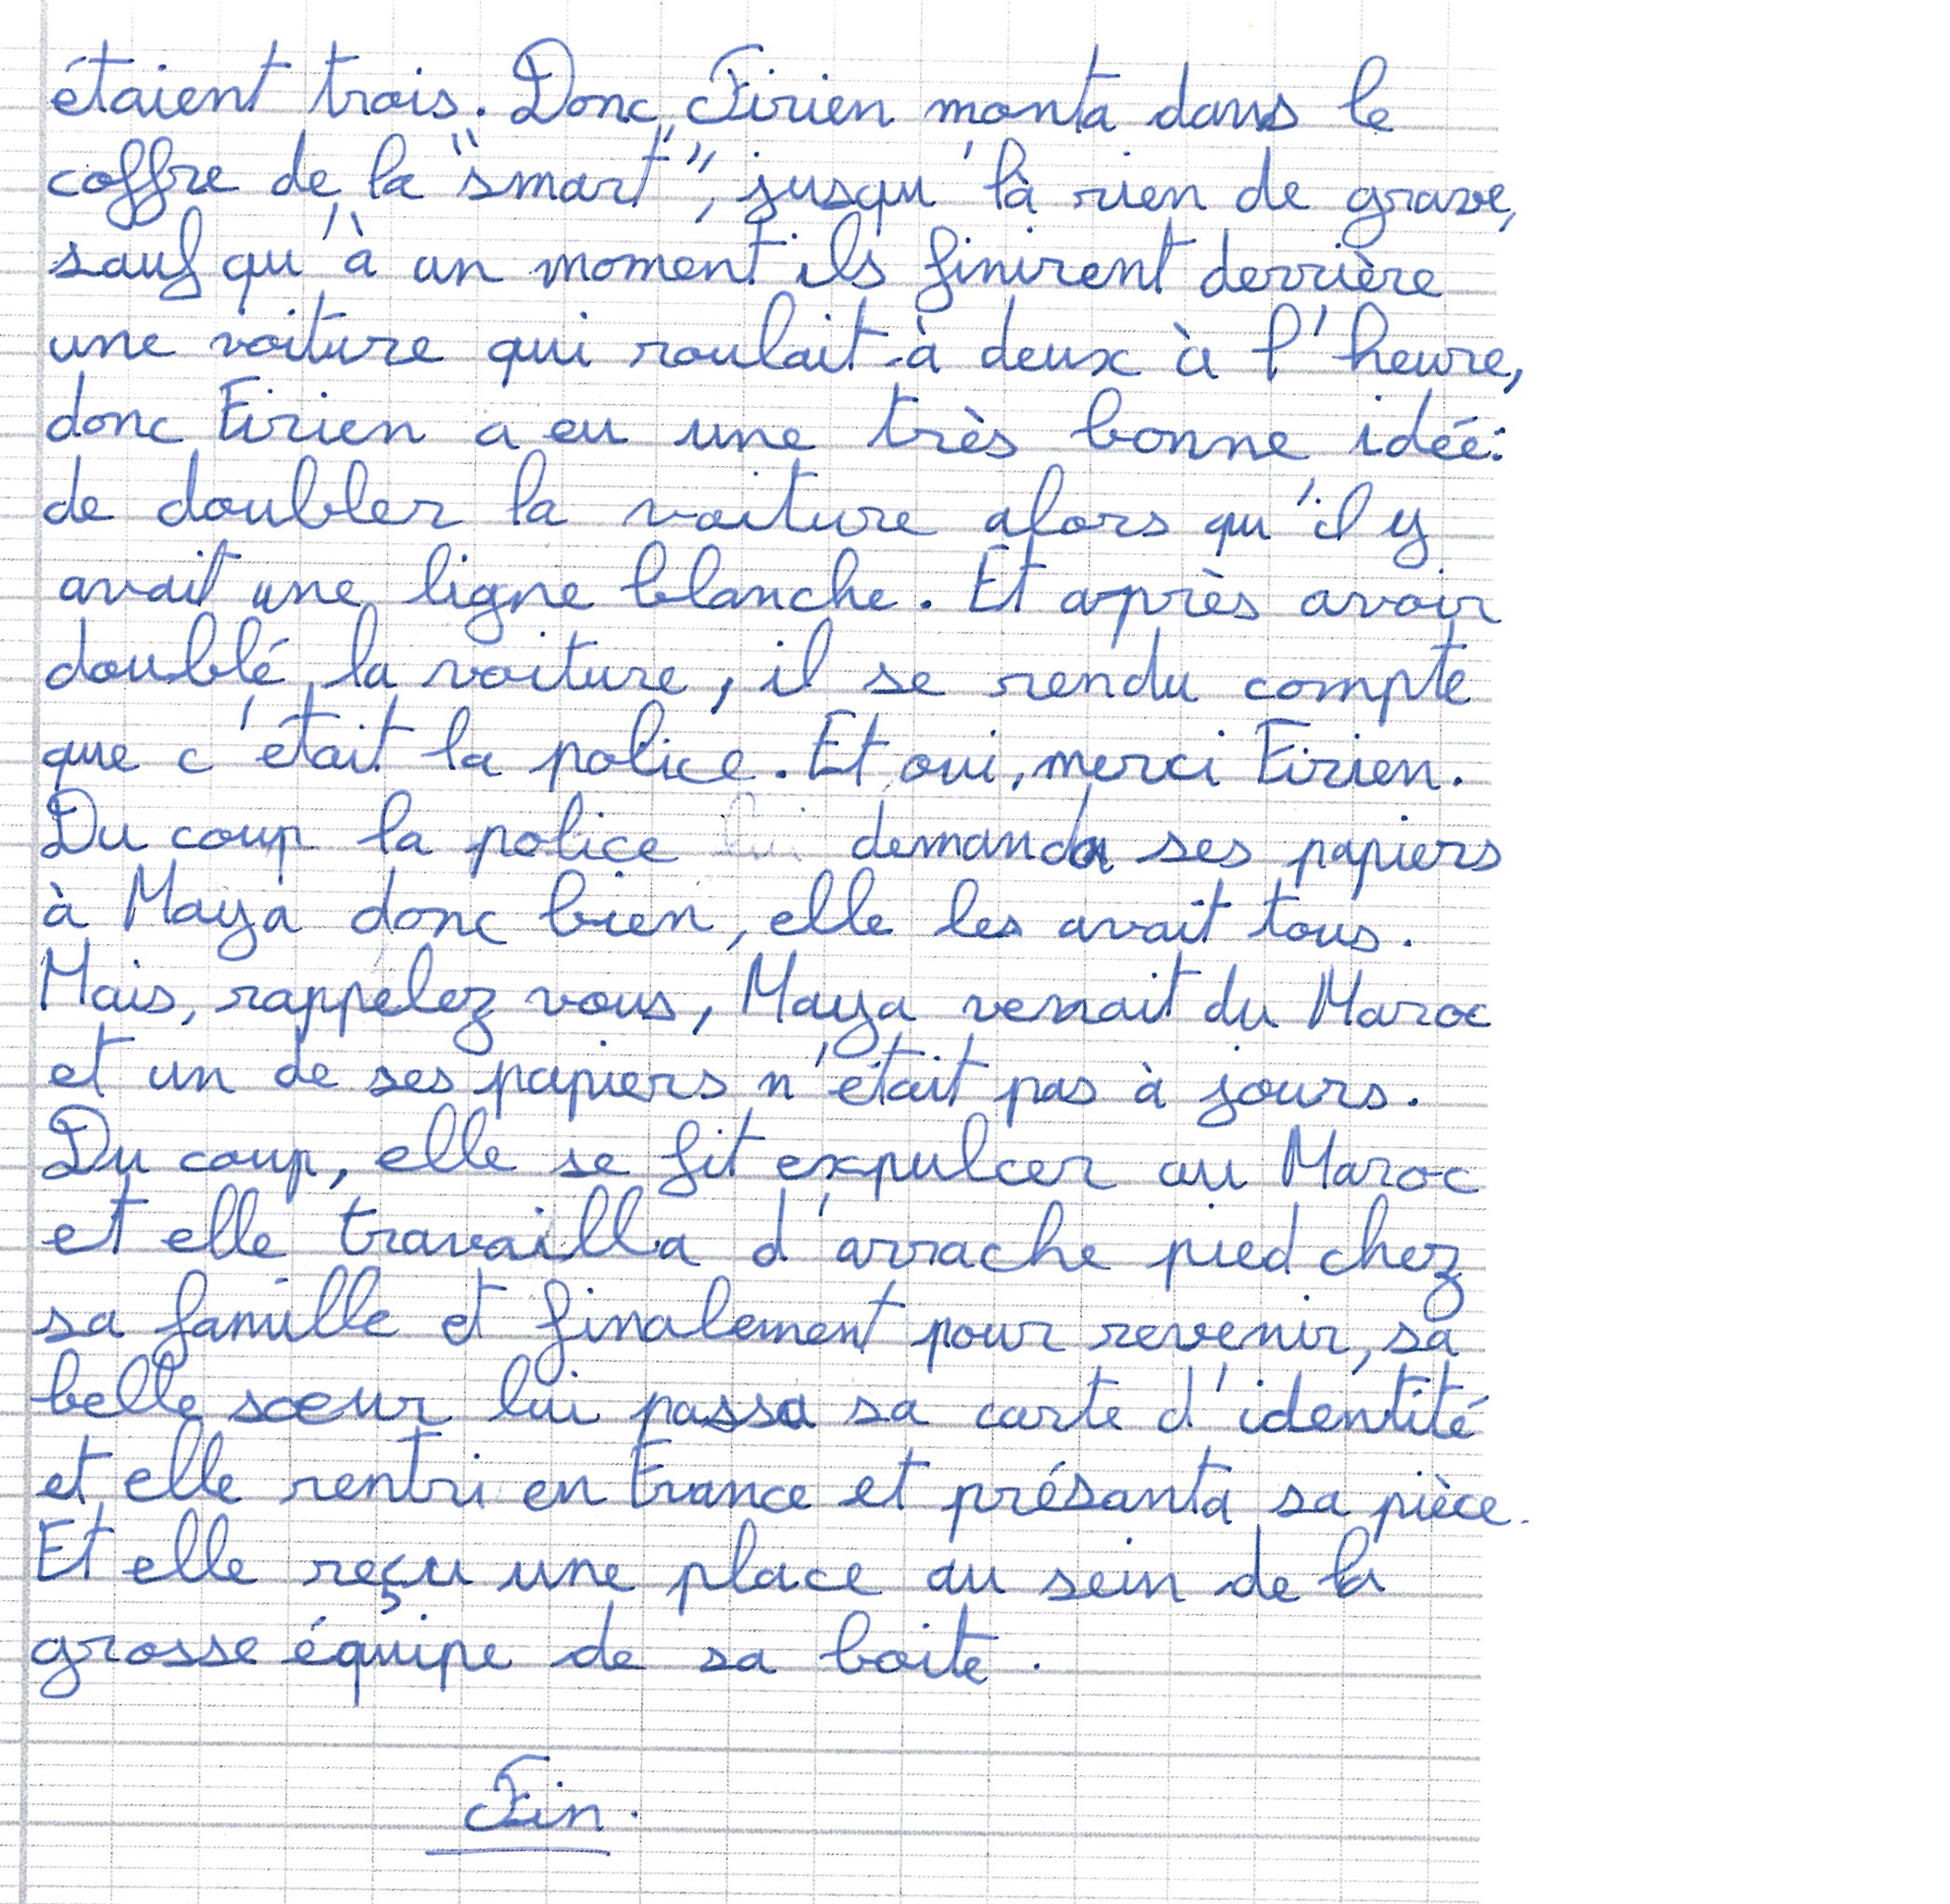 étaient trois. Donc Firien monta dans le
coffre de la "smart", jusqu'là rien de grave,
sauf qu'à un moment ils finirent derrière
une voiture qui roulait à deux à l'heure,
donc Firien a eu une très bonne idée:
de doubler la voiture alors qu'il y
avait une ligne blanche. Et après avoir
doublé la voiture, il se rendu compte
que c'était la police. Et oui, merci Firien.
Du coup la police demanda ses papiers
à Maya donc bien, elle les avait tous.
Mais, rappelez vous, Maya venait du Maroc
et un de ses papiers n'était pas à jours.
Du coup, elle se fit expulcer au Maroc
et elle travailla d'arrache pied chez
sa famille et finalement pour revenir, sa
belle sœur lui passa sa carte d'identité
et elle rentri en France et présanta sa pièce.
Et elle reçu une place au sein de la
grosse équipe de sa boite.
Fin.